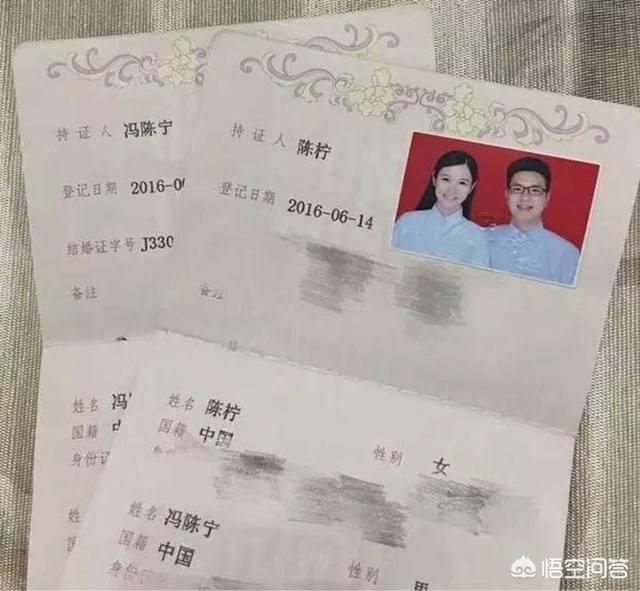 持证人 冯陈宁
登记日期 2016-0
结婚证字号 J330
备注
姓名 冯
国籍 中
身份证
姓
国
身
持证人 陈柠
登记日期 2016-06-14
备注
姓名 陈柠
国籍 中国
性别 女
身份证
姓名 冯陈宁
国籍 中国
性别 男
身份证
悟空问答